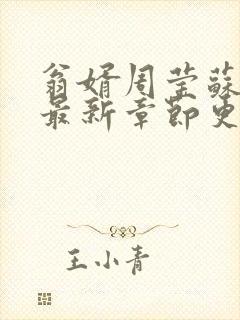 翁婿周莹蘇
最新章節更
王小青